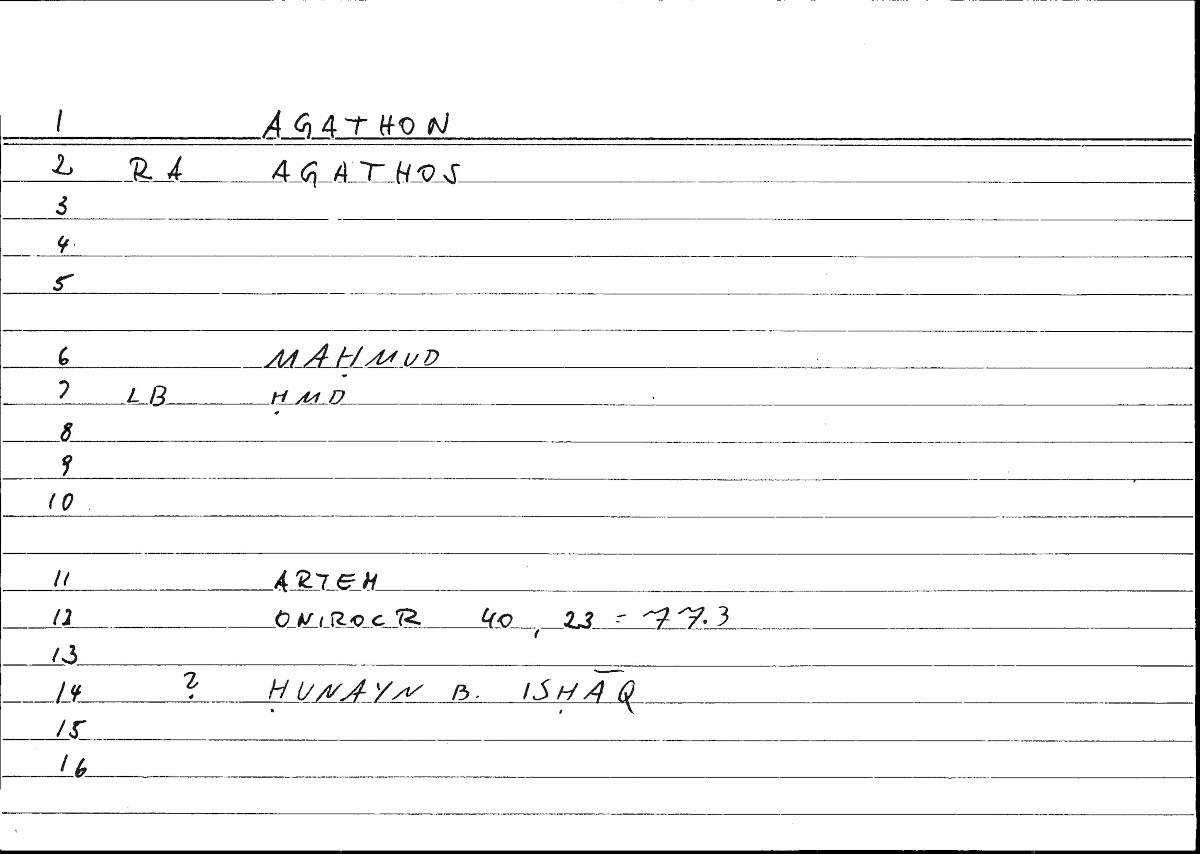 1 AGATHON
2 RA AGATHOS
3
4
5
6 MAḤMUD
7 LB ḤMD
8
9
10
11 ARTEM
12 ONIROCR 40, 23 = 77.3
13
14 ? ḤUNAYN B. ISḤĀQ
15
16